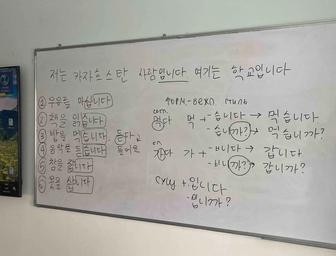 저는 카자흐스탄 사람입니다 여기는 학교입니다
① 우유를 마십니다
② 책을 읽습니다
③ 밥을 먹습니다 듣다
④ 음악을 듣습니다 들어요
⑤ 잠을 잡니다
⑥ 옷을 삽니다
먹다 먹 + -습니다 → 먹습니다
-습니까? → 먹습니까?
가다 가 + -ㅂ니다 → 갑니다
-ㅂ니까? → 갑니까?
сущ + 입니다
-입니까?